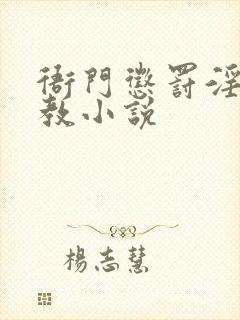 衙門懲罰淫
教小說
楊志慧